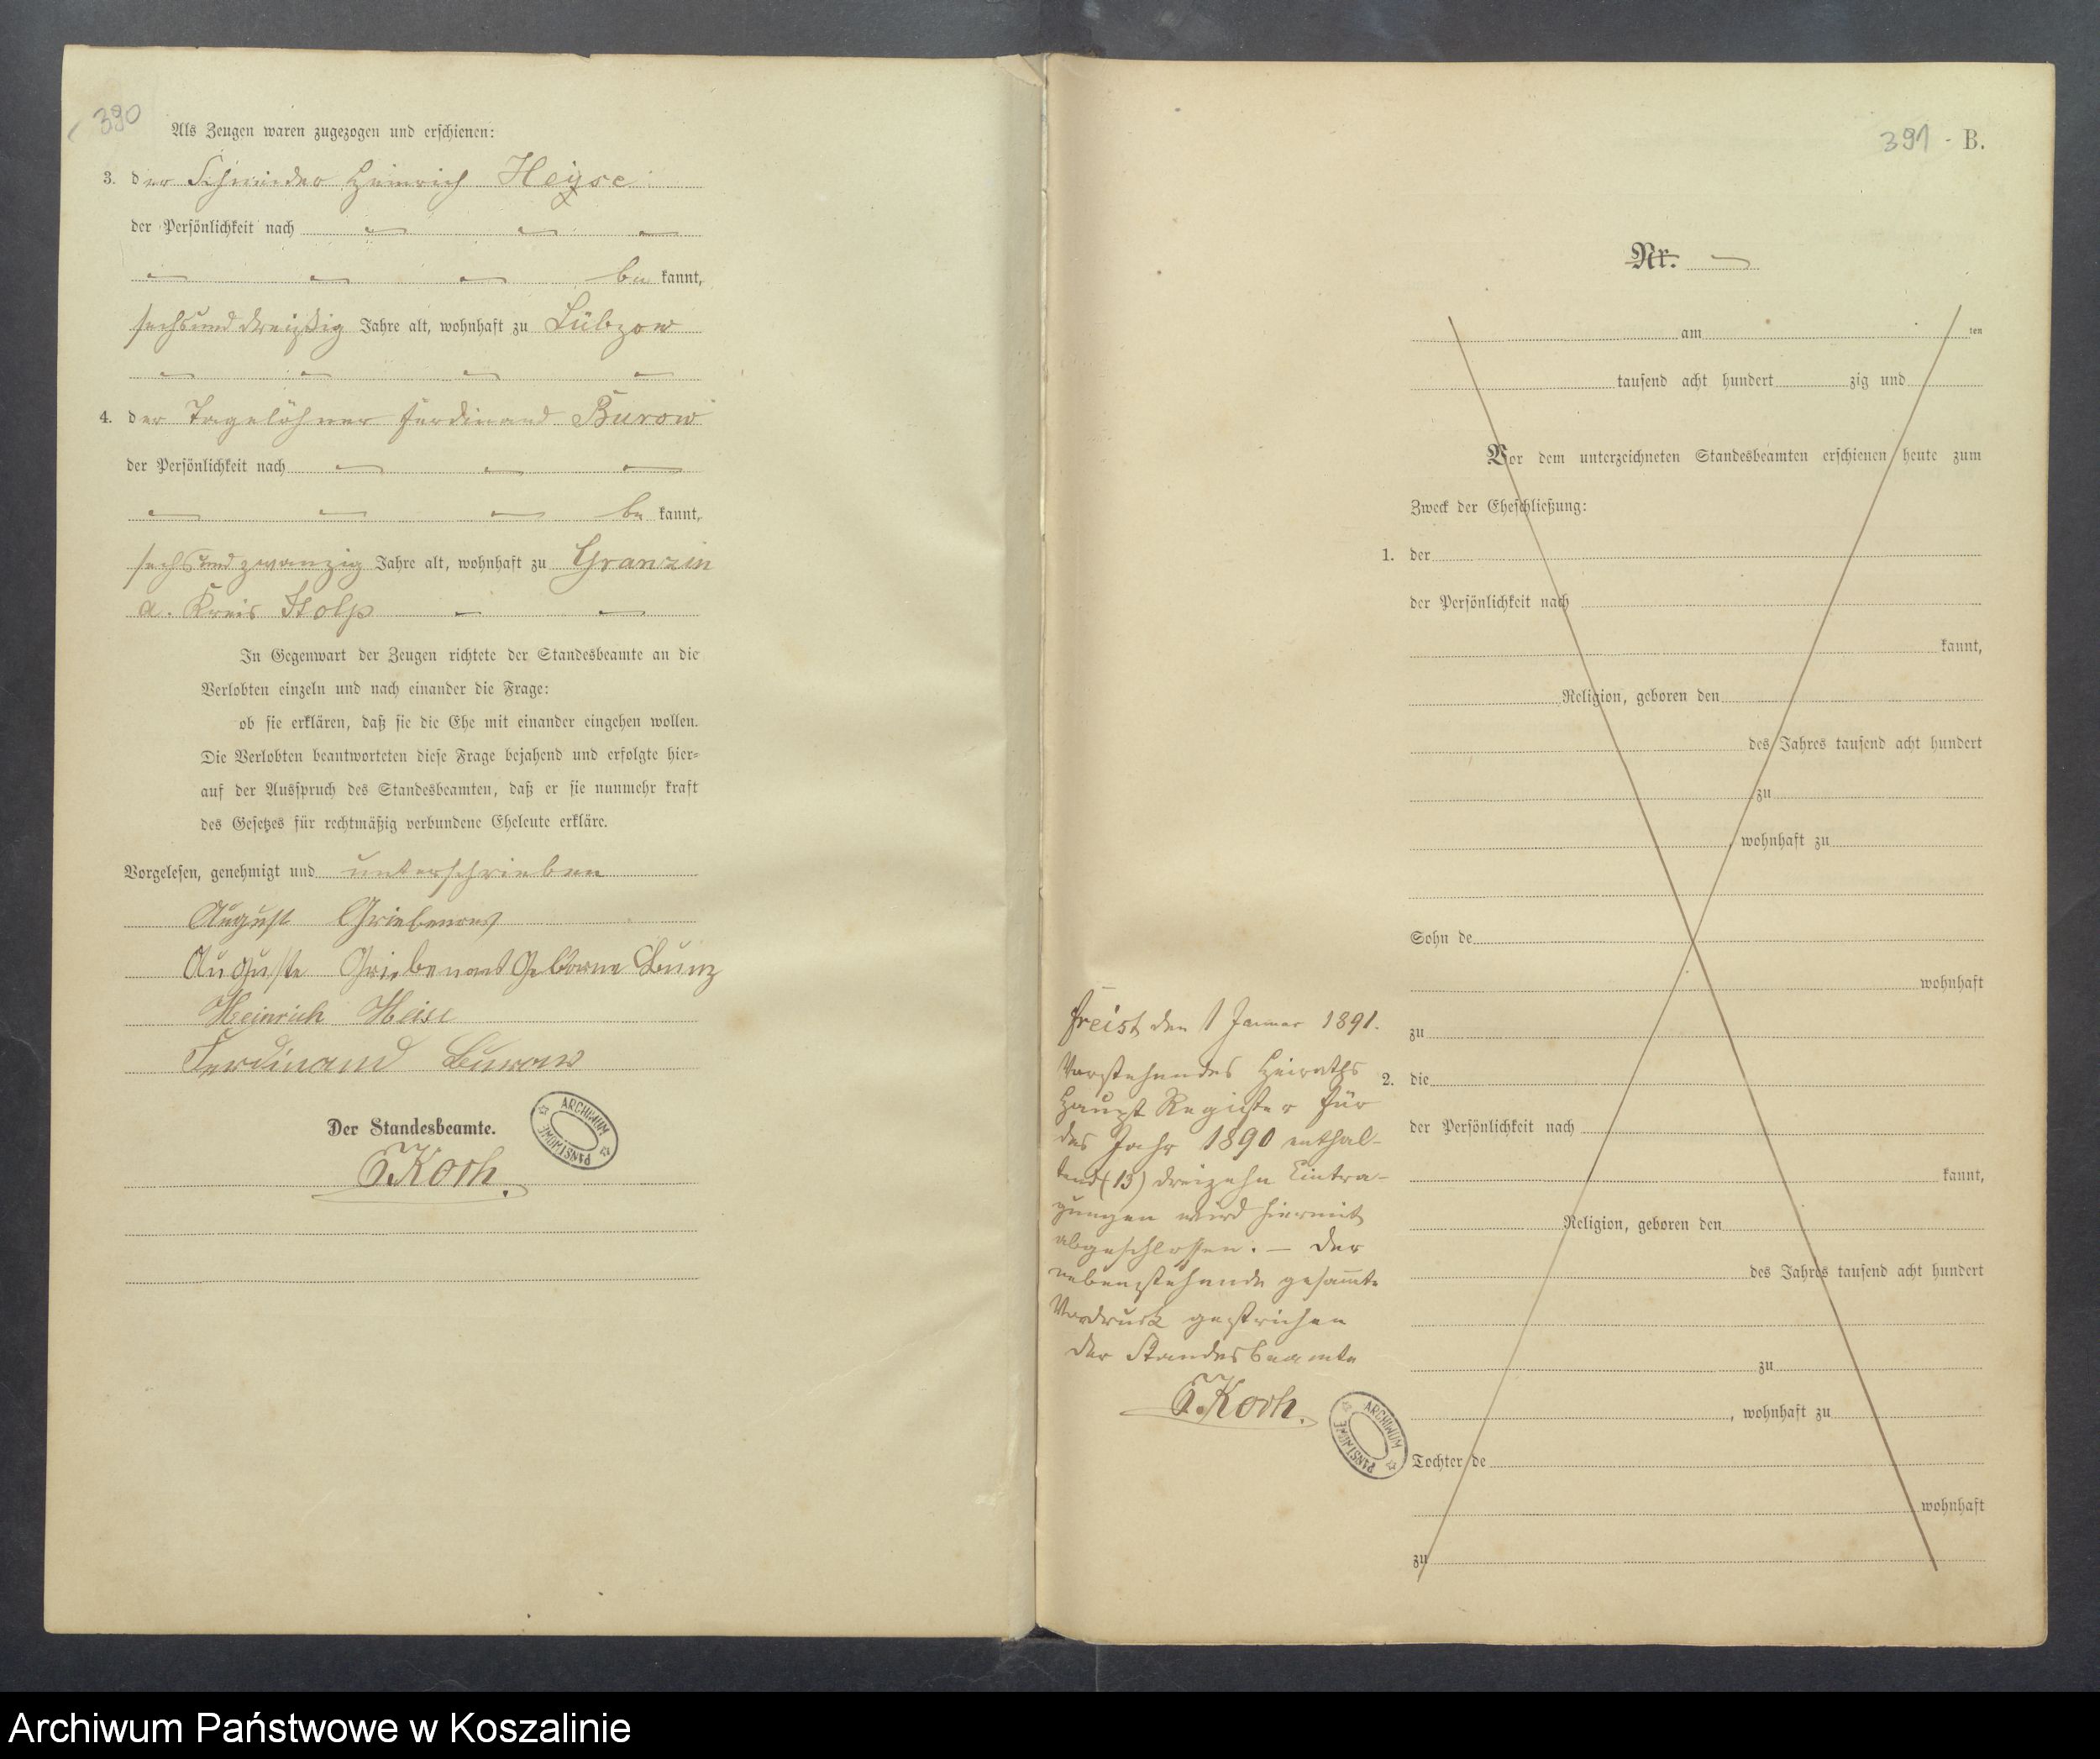 390
Als Zeugen waren zugezogen und erschienen:
3. der Schneider Heinrich Heyse
der Persönlichkeit nach
be kannt,
sechsunddreißig Jahre alt, wohnhaft zu Lübzow
4. der Tagelöhner Ferdinand Burow
der Persönlichkeit nach
be kannt,
sechsundzwanzig Jahre alt, wohnhaft zu Granzin
a. Kreis Stolp
In Gegenwart der Zeugen richtete der Standesbeamte an die
Verlobten einzeln und nach einander die Frage:
ob sie erklären, daß sie die Ehe mit einander eingehen wollen.
Die Verlobten beantworteten diese Frage bejahend und erfolgte hier-
auf der Ausspruch des Standesbeamten, daß er sie nunmehr kraft
des Gesetzes für rechtmäßig verbundene Eheleute erkläre.
Vorgelesen, genehmigt und unterschrieben
August Griebenow
Auguste Griebenow Geborne Bunz
Heinrich Heise
Ferdinand Burow
Der Standesbeamte.
Koch.
ARCHIWUM PAŃSTWOWE
391 - B.
Nr.
am ten
tausend acht hundert zig und
Vor dem unterzeichneten Standesbeamten erschienen heute zum
Zweck der Eheschließung:
1. der
der Persönlichkeit nach
kannt,
Religion, geboren den
des Jahres tausend acht hundert
zu
, wohnhaft zu
Sohn de
wohnhaft
zu
2. die
der Persönlichkeit nach
kannt,
Religion, geboren den
des Jahres tausend acht hundert
zu
, wohnhaft zu
Tochter de
wohnhaft
zu
Freist den 1 Januar 1891.
Vorstehendes Heiraths
Haupt Register für
das Jahr 1890 enthal-
tend (13) dreizehn Eintra-
gungen wird hiermit
abgeschlossen. — Der
nebenstehende gesammte
Vordruck gestrichen
Der Standesbeamte
Koch.
ARCHIWUM PAŃSTWOWE
Archiwum Państwowe w Koszalinie